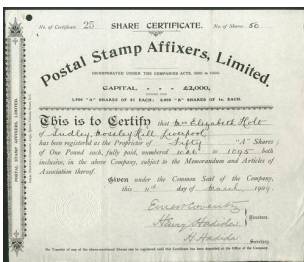 No. of Certificate 25 SHARE CERTIFICATE. No. of Shares 50
Postal Stamp Affixers, Limited.
INCORPORATED UNDER THE COMPANIES ACTS, 1862 to 1900
CAPITAL £2,000,
DIVIDED INTO
1,900 "A" SHARES OF £1 EACH; 2,000 "B" SHARES OF 1s. EACH.
This is to Certify that Mrs Elizabeth Holt
of Sudley, Mossley Hill, Liverpool
has been registered as the Proprietor of Fifty "A" Shares
of One Pound each, fully paid, numbered 1046 to 1095 both
inclusive, in the above Company, subject to the Memorandum and Articles of
Association thereof.
Given under the Common Seal of the Company,
this 11th day of March 1904.
Directors.
Henry Hadida
H. Hadida
Secretary.
No Transfer of any of the above-mentioned Shares can be registered until this Certificate has been deposited at the Office of the Company.
POSTAL STAMP AFFIXERS, LIMITED.